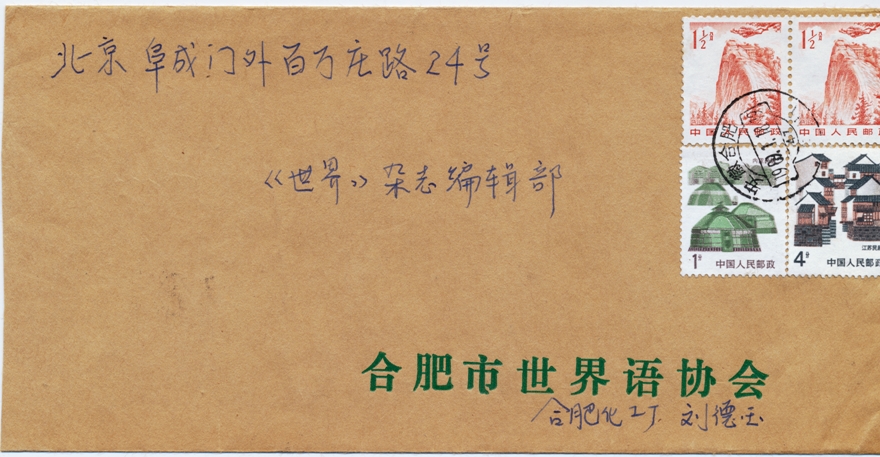 北京阜成门外百万庄路24号
《世界》杂志编辑部
1½分
中国人民邮政
1½分
中国人民邮政
1分
中国人民邮政
4分
江苏民居
中国人民邮政
安徽合肥
合肥市世界语协会
合肥化工厂 刘德玉